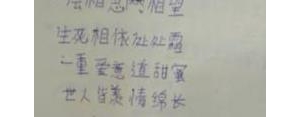 相思两相望
生死相依处处霜
一重爱意道甜蜜
世人皆羡情绵长